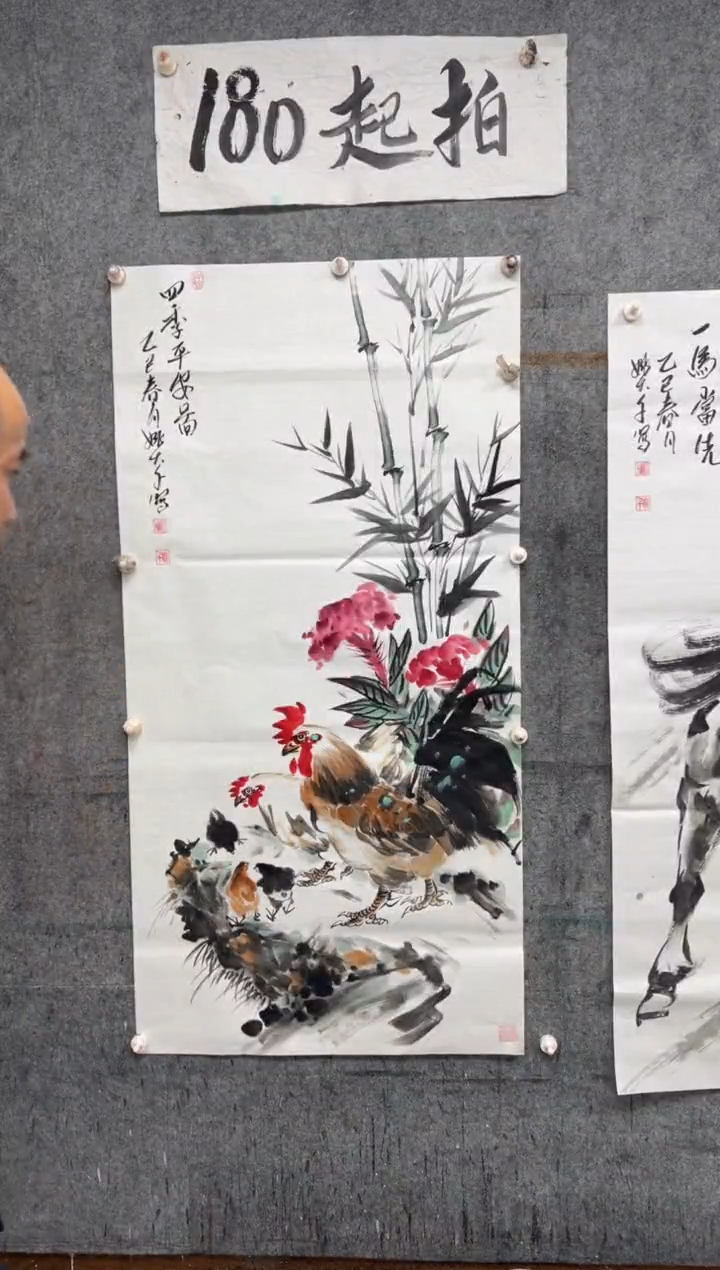 180起拍
四季平安图
乙巳春月姚大千写
一马当先
乙巳春月
姚大千写